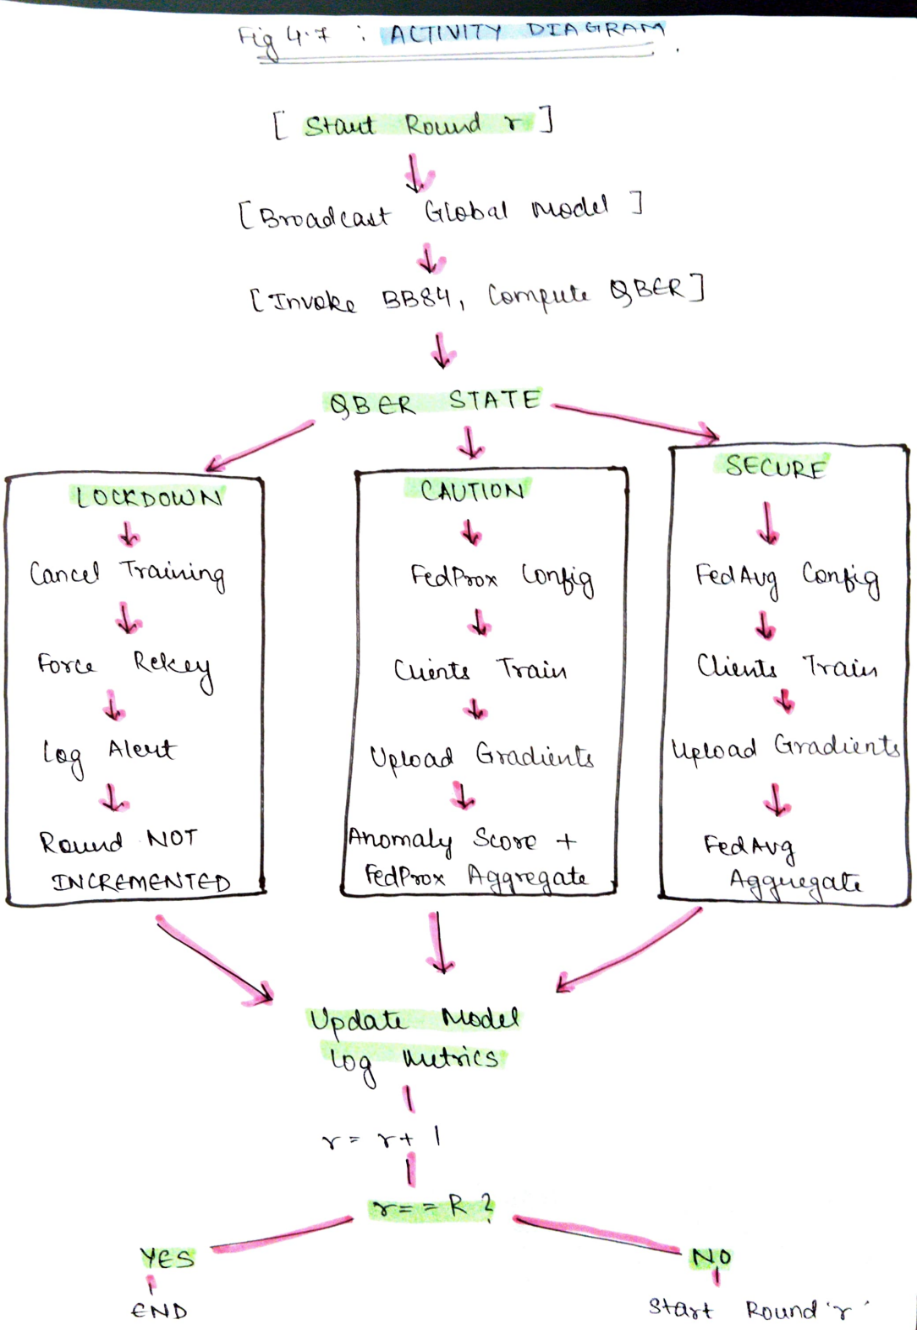 Fig 4.7 : ACTIVITY DIAGRAM.
[ Start Round r ]
[Broadcast Global Model ]
[Invoke BB84, Compute QBER]
QBER STATE
LOCKDOWN
Cancel Training
Force Rekey
Log Alert
Round NOT
INCREMENTED
CAUTION
FedProx Config
Clients Train
Upload Gradients
Anomaly Score +
FedProx Aggregate
SECURE
FedAvg Config
Clients Train
Upload Gradients
FedAvg
Aggregate
Update Model
Log Metrics
r = r+ 1
r== R ?
YES
END
NO
Start Round 'r'